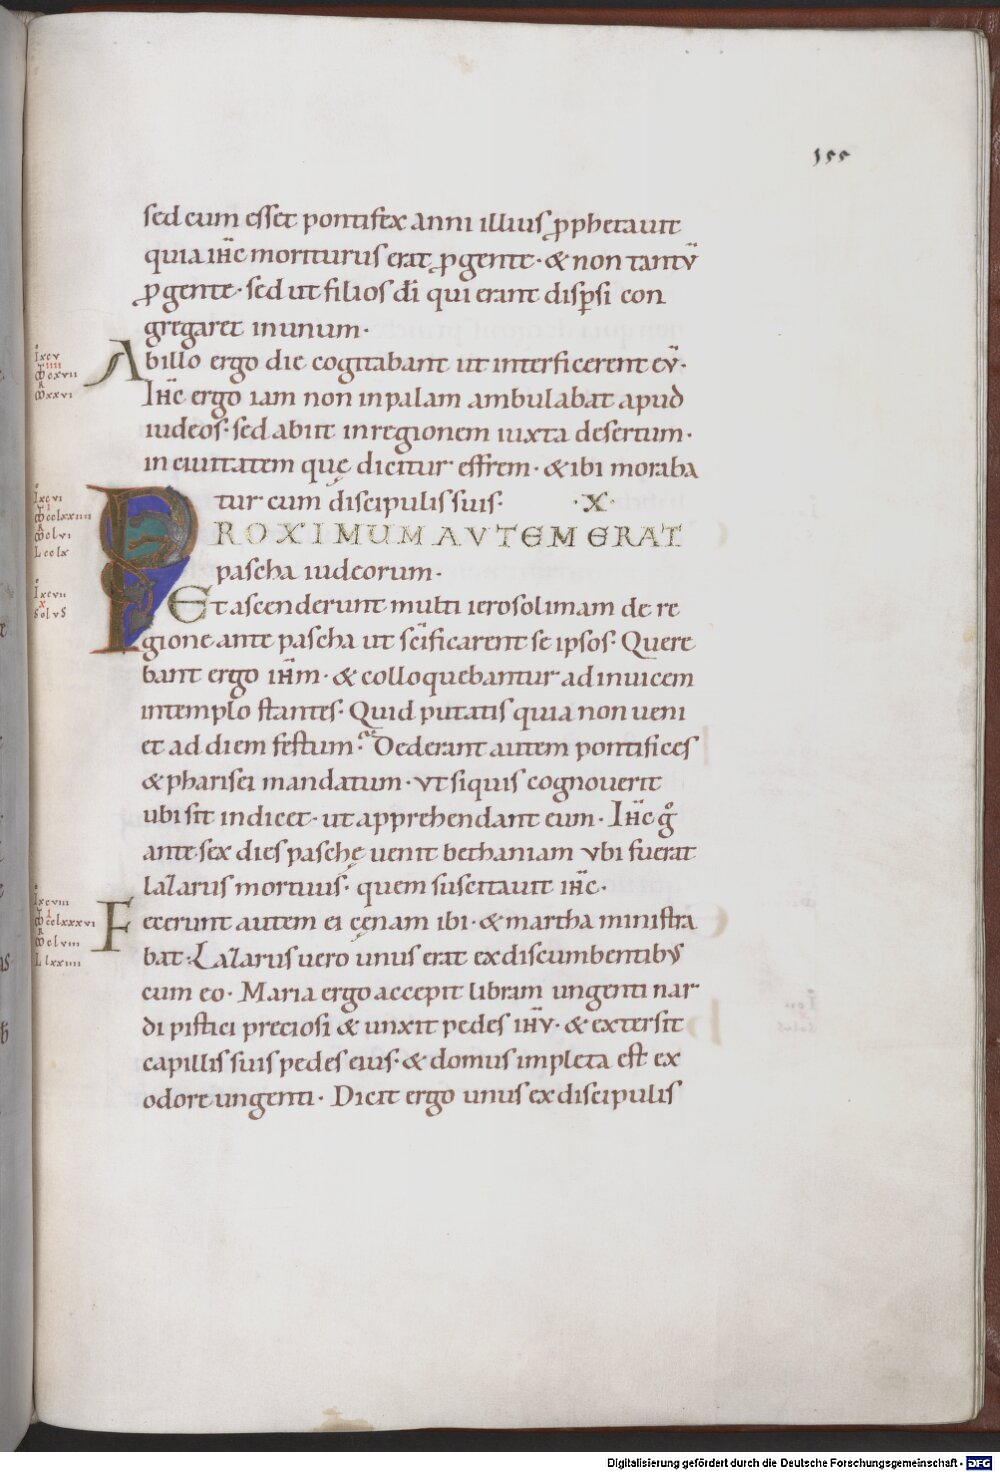 155
sed cum esset pontifex anni illius ꝓphetauit
quia ih̅c moriturus erat ꝓ gente· & non tantū
ꝓ gente· sed ut filios dī qui erant disꝑsi con
gregaret in unum·
Ab illo ergo die cogitabant ut interficerent eū·
Ih̅c ergo iam non in palam ambulabat apud
iudeos· sed abiit in regionem iuxta desertum·
in ciuitatem quę dicitur effrem· & ibi moraba
tur cum discipulis suis· ·X·
PROXIMUM AVTEM ERAT
pascha iudeorum·
Et ascenderunt multi ierosolimam de re
gione ante pascha ut sc̄ificarent se ipsos· Quere
bant ergo ih̅m· & colloquebantur ad inuicem
in templo stantes· Quid putatis quia non ueni
et ad diem festum· Dederant autem pontifices
& pharisei mandatum· vt siquis cognouerit
ubi sit indicet· ut apprehendant eum· Ih̅c gͦ
ante sex dies paschę uenit bethaniam vbi fuerat
lazarus mortuus· quem suscitauit ih̅c·
Fecerunt autem ei cęnam ibi· & martha ministra
bat· Lazarus uero unus erat ex discumbentibus
cum eo· Maria ergo accepit libram ungenti nar
di pistici preciosi & unxit pedes ih̅v· & extersit
capillis suis pedes eius· & domus impleta est ex
odore ungenti· Dicit ergo unus ex discipulis
Digitalisierung gefördert durch die Deutsche Forschungsgemeinschaft - DFG